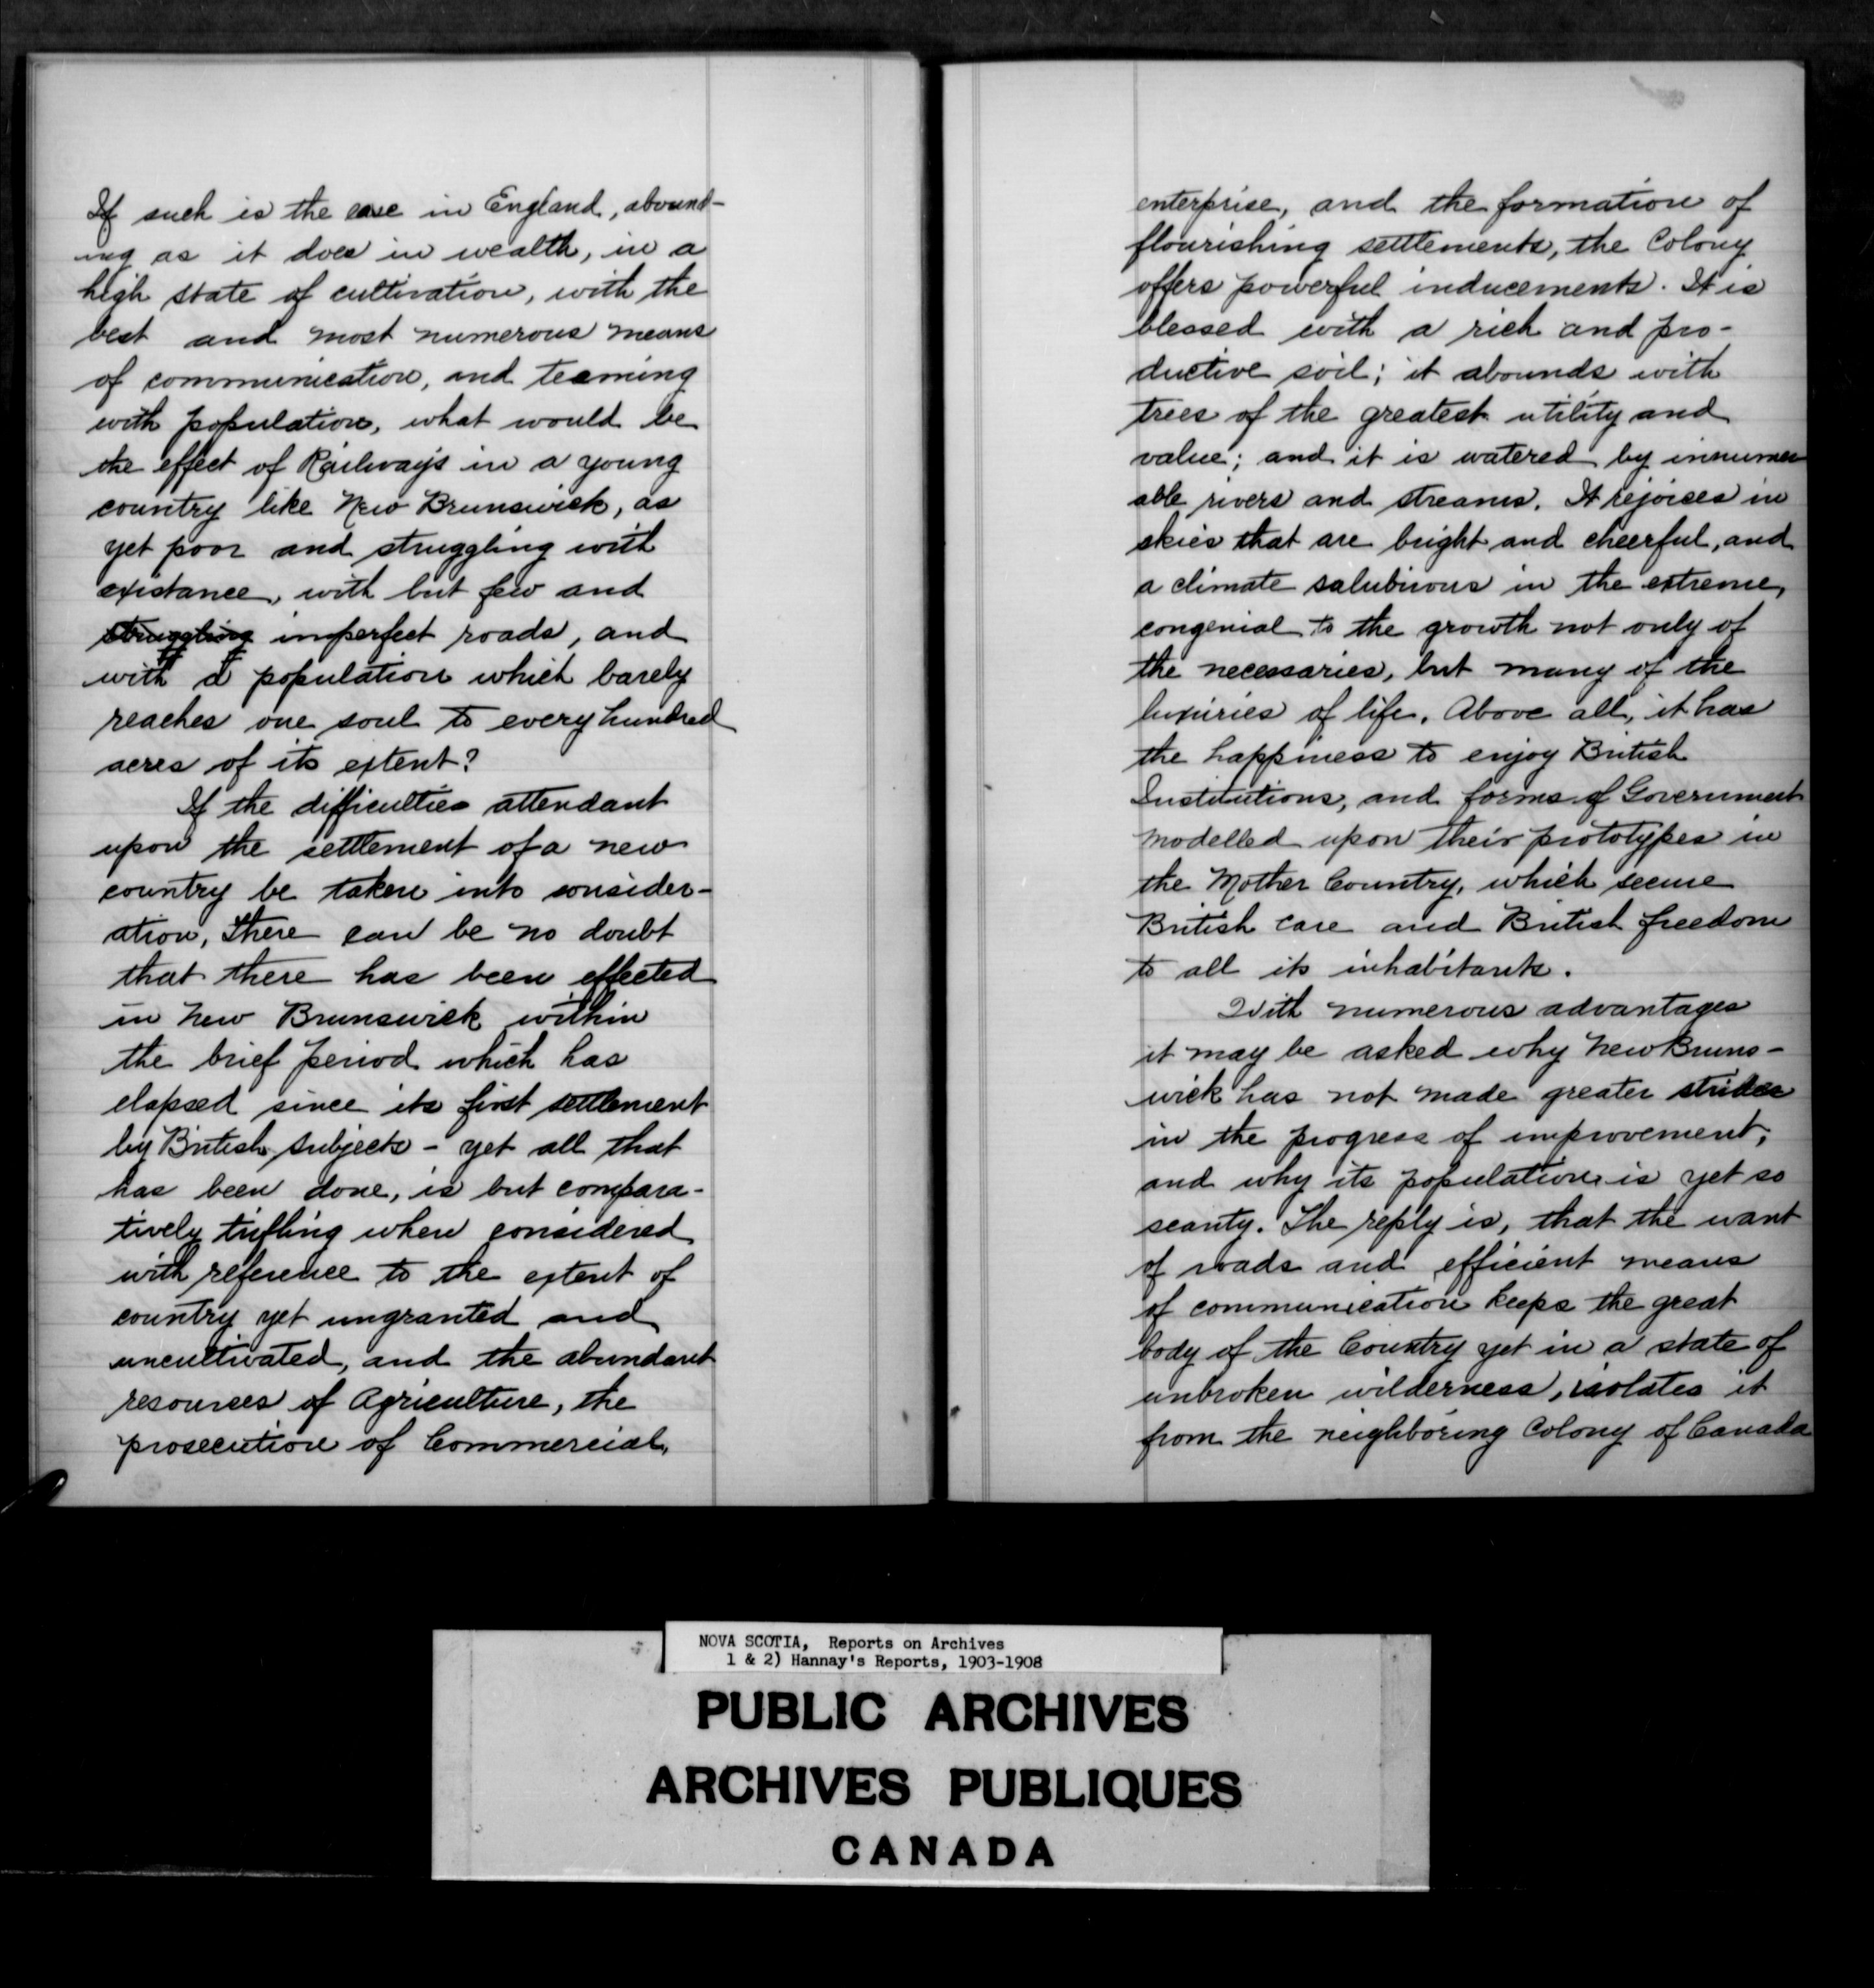 If such is the case in England, abound-
ing as it does in wealth, in a
high state of cultivation, with the
best and most numerous means
of communication, and teeming
with population, what would be
the effect of Railways in a young
country like New Brunswick, as
yet poor and struggling with
existance, with but few and
struggling imperfect roads, and
with a population which barely
reaches one soul to every hundred
acres of its extent?
If the difficulties attendant
upon the settlement of a new
country be taken into consider-
ation, there can be no doubt
that there has been effected
in New Brunswick within
the brief period which has
elapsed since its first settlement
by British subjects - yet all that
has been done, is but compara-
tively trifling when considered
with reference to the extent of
country yet ungranted and
uncultivated, and the abundant
resources of Agriculture, the
prosecution of Commercial,
enterprise, and the formation of
flourishing settlements, the Colony
offers powerful inducements. It is
blessed with a rich and pro-
ductive soil; it abounds with
trees of the greatest utility and
value; and it is watered by innumer
able rivers and streams. It rejoices in
skies that are bright and cheerful, and
a climate salubrious in the extreme,
congenial to the growth not only of
the necessaries, but many of the
luxuries of life. Above all, it has
the happiness to enjoy British
Institutions, and forms of Government
modelled upon their prototypes in
the Mother Country, which secure
British care and British freedom
to all its inhabitants.
With numerous advantages
it may be asked why New Bruns-
wick has not made greater strides
in the progress of improvement,
and why its population is yet so
scanty. The reply is, that the want
of roads and efficient means
of communication keeps the great
body of the Country yet in a state of
unbroken wilderness, isolates it
from the neighboring Colony of Canada
NOVA SCOTIA, Reports on Archives
1 & 2) Hannay's Reports, 1903-1908
PUBLIC ARCHIVES
ARCHIVES PUBLIQUES
CANADA